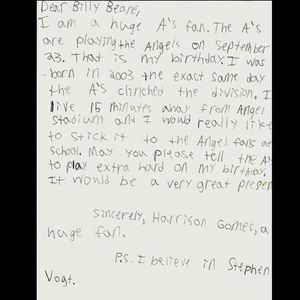 Dear Billy Beane,
I am a huge A's fan. The A's
are playing the Angels on September
23. That is my birthday. I was
born in 2003 the exact same day
the A's clinched the division. I
live 15 minutes away from Angel
stadium and I would really like
to stick it to the Angel fans at
school. May you please tell the A's
to play extra hard on my birthday.
It would be a very great present
Sincerely, Harrison Gomes, a
huge fan.
P.S. I believe in Stephen
Vogt.